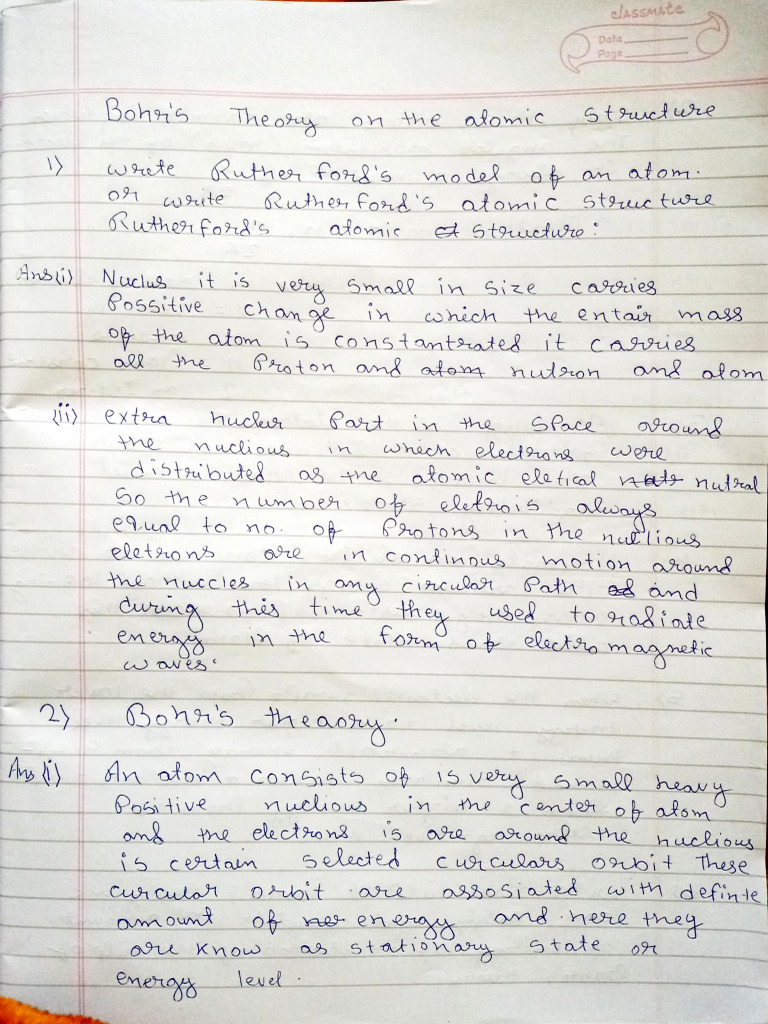 classmate
Date
Page
Bohr's Theory on the atomic structure
1) wrete Ruther ford's model of an atom.
or write Ruther ford's atomic structure
Rutherford's atomic st structure:
Ans(i) Nuclus it is very small in size carries
Possitive change in which the entair mass
of the atom is constantrated it carries
all the Proton and atom nutron and atom
(ii) extra nucler Part in the Space around
the nuclious in which electrons were
distributed as the atomic eletical nutral
So the number of eletrois always
equal to no. of Protons in the nuclious
eletrons are in continous motion around
the nuccles in any circular Path ad and
during this time they used to radiate
energy in the form of electro magnetic
waves.
2) Bohr's theaory.
Ans (i) An atom consists of is very small heavy
Positive nuclious in the center of atom
and the electrons is are around the nuclious
is certain selected curculars orbit These
curcular orbit are assosiated with definte
amount of energy and here they
are know as stationary state or
energy level.